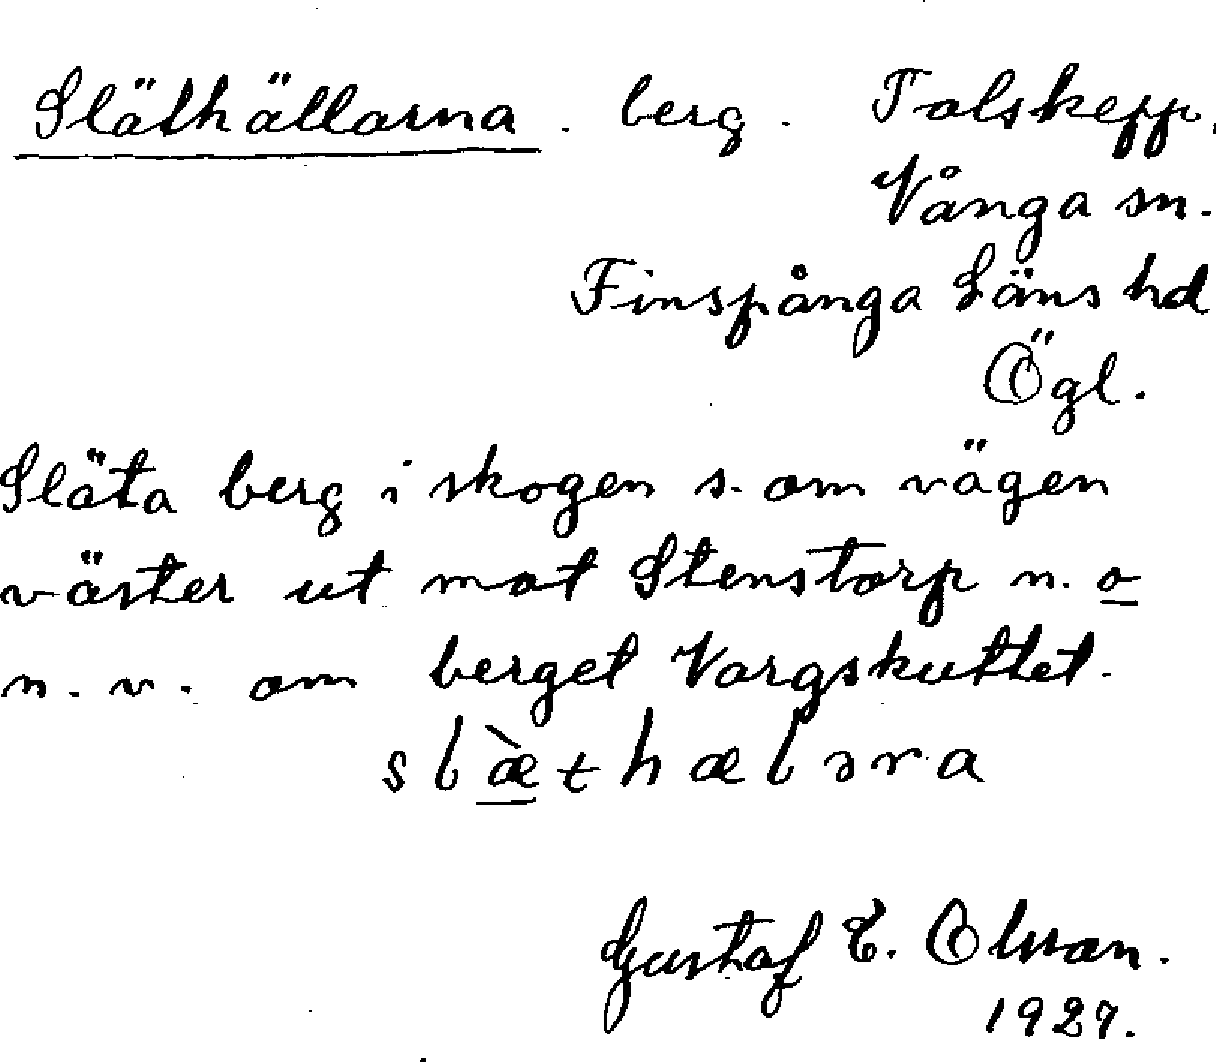 Släthällarna . berg . Tolskepp.
Vånga sn.
Finspånga Läns hd
Ögl.
Släta berg i skogen s. om vägen
väster ut mot Stenstorp n. o
n. v. om berget Vargskuttet.
slæ̀thælɘra
Gustaf E. Olsson.
1927.